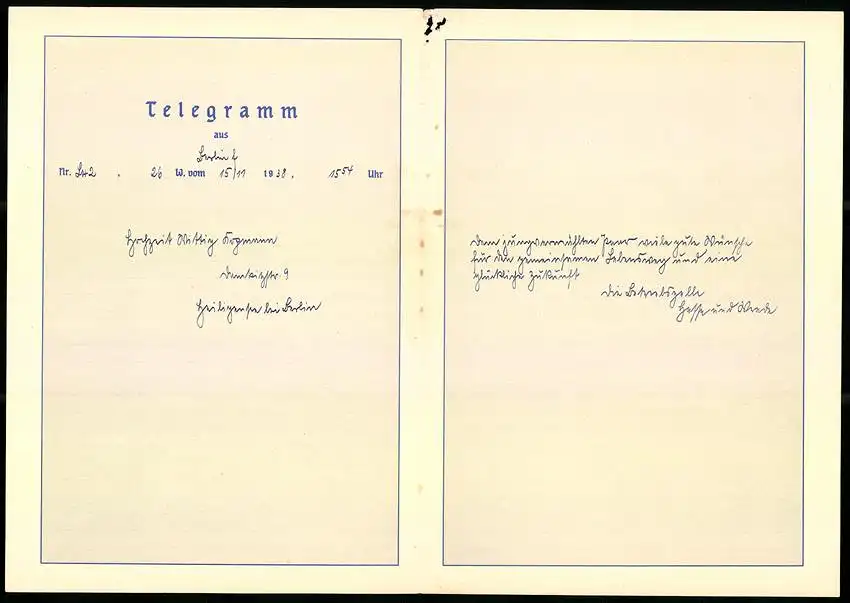 Telegramm
aus
Berlin f
Nr. 26 W. vom 15/11 1938. 15 54 Uhr
Hochzeit Wittig
9
Heiligensee bei Berlin
dem jungvermählten Paar viele gute Wünsche
für den gemeinsamen Lebensweg und eine
glückliche Zukunft
die Betriebszelle
Hesse und Wrede